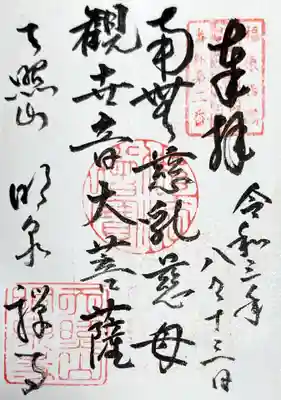 奉拝
令和三年
八月十三日
南無慈乳慈母
観世音大菩薩
天照山 明泉禅寺